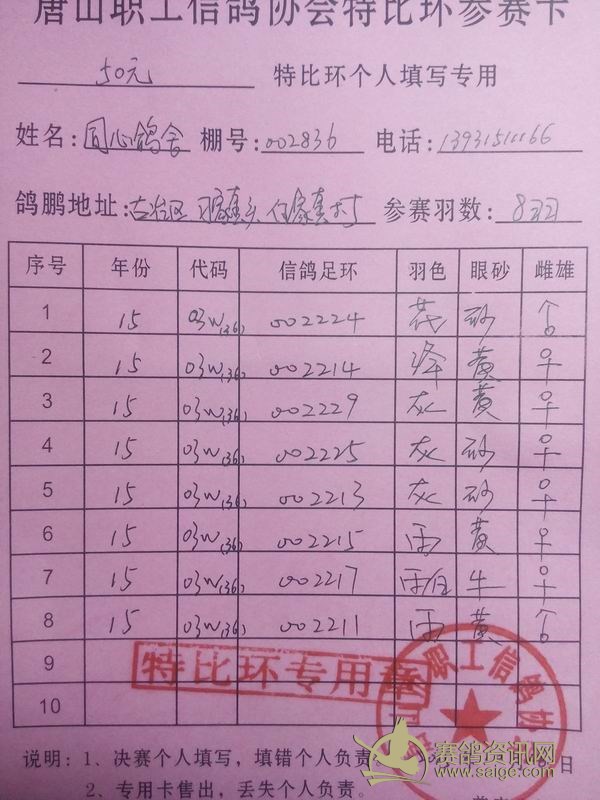 唐山职工信鸽协会特比环参赛卡
50元 特比环个人填写专用
姓名:同心鸽舍 棚号:002836 电话:13931511166
鸽鹏地址:古冶区 参赛羽数:8羽
序号 年份 代码 信鸽足环 羽色 眼砂 雌雄
1 15 03W(36) 002224 花 砂 ♂
2 15 03W(36) 002214 绛 黄 ♀
3 15 03W(36) 002229 灰 黄 ♀
4 15 03W(36) 002225 灰 砂 ♀
5 15 03W(36) 002213 灰 砂 ♀
6 15 03W(36) 002215 雨 黄 ♀
7 15 03W(36) 002217 雨白 牛 ♀
8 15 03W(36) 002211 雨 黄 ♂
9
10
特比环专用章
职工信鸽协
说明:1、决赛个人填写,填错个人负责 日
2、专用卡售出,丢失个人负责。
赛鸽资讯网
www.saige.com